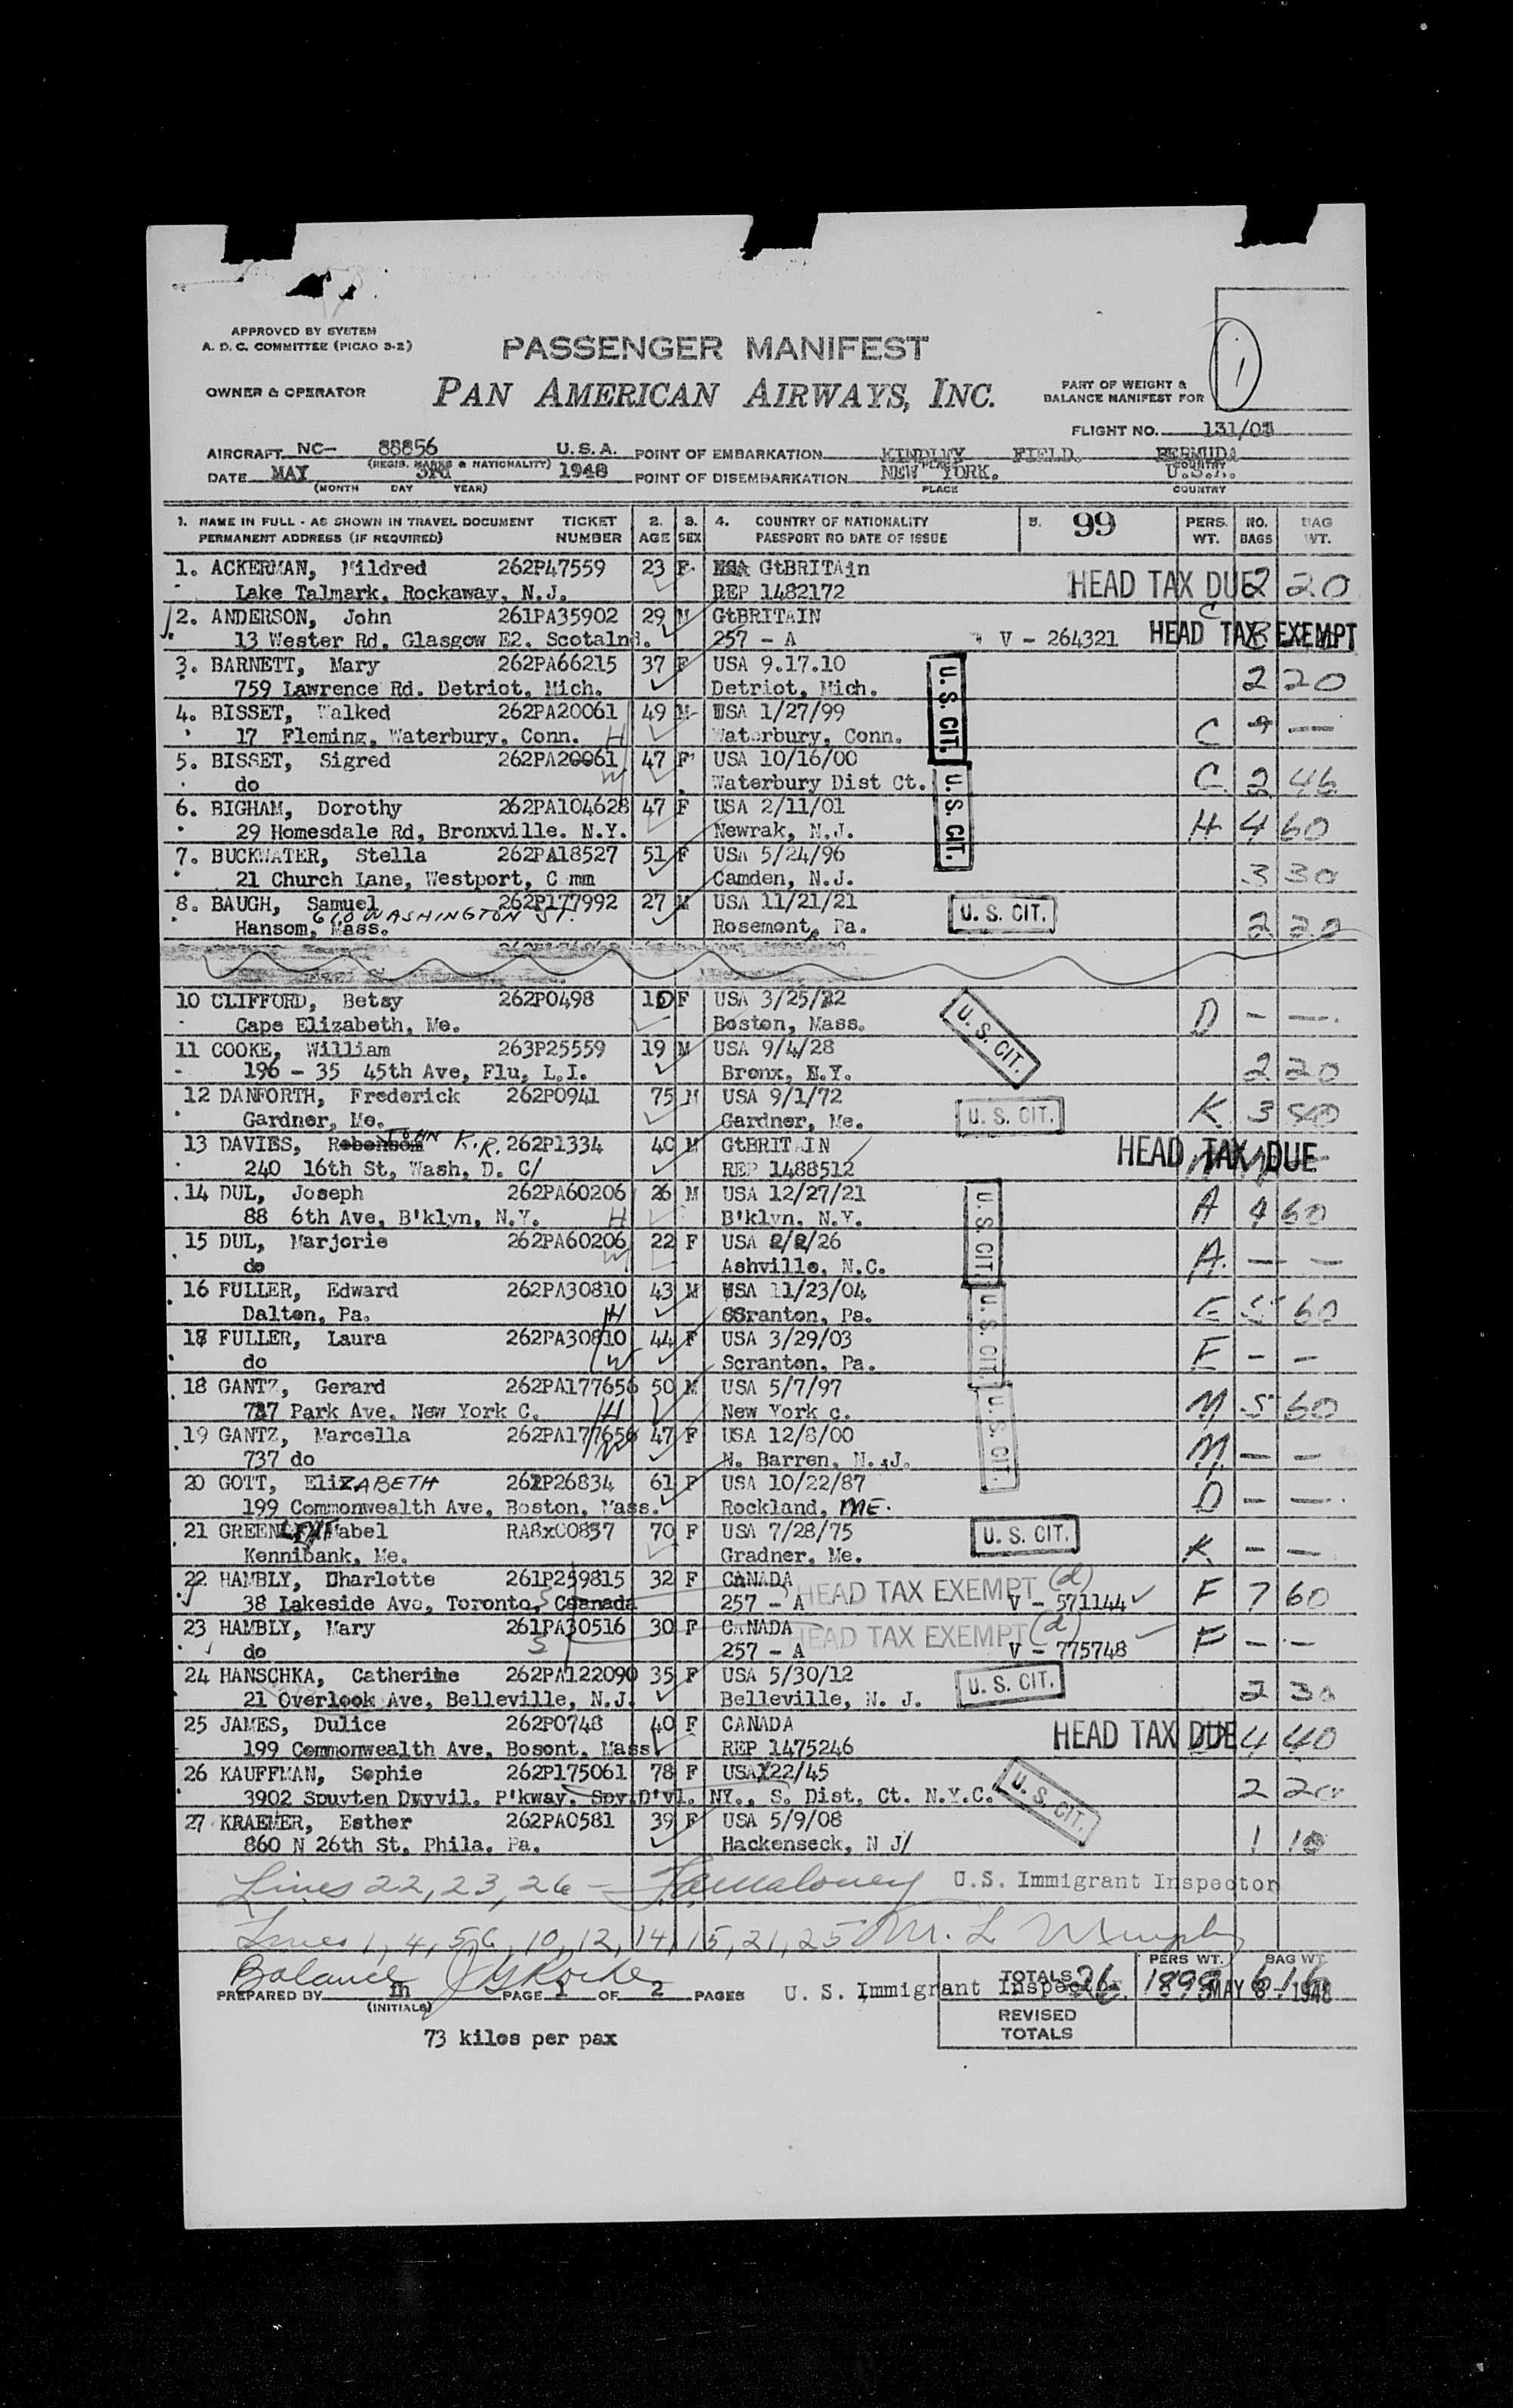 APPROVED BY SYSTEM
A. D. C. COMMITTEE (PICAO 3-2)
PASSENGER MANIFEST
1
OWNER & OPERATOR
PAN AMERICAN AIRWAYS, INC.
PART OF WEIGHT &
BALANCE MANIFEST FOR
FLIGHT NO. 131/03
AIRCRAFT NC- 88856 U.S.A. POINT OF EMBARKATION KINDLEY FIELD. BERMUDA
(REGIS. MARKS & NATIONALITY) PLACE COUNTRY
DATE MAY 3rd 1948 POINT OF DISEMBARKATION NEW YORK. U.S.A.
(MONTH DAY YEAR) PLACE COUNTRY
1. NAME IN FULL - AS SHOWN IN TRAVEL DOCUMENT TICKET 2. 3. 4. COUNTRY OF NATIONALITY 5. 99 PERS. NO. BAG
PERMANENT ADDRESS (IF REQUIRED) NUMBER AGE SEX PASSPORT NO DATE OF ISSUE WT. BAGS WT.
1. ACKERMAN, Mildred 262P47559 23 F GtBRITAin
Lake Talmark, Rockaway, N.J. REP 1482172 HEAD TAX DUE 2 20
2. ANDERSON, John 261PA35902 29 M GtBRITAIN C
13 Wester Rd, Glasgow E2. Scotalnd. 257 - A V - 264321 HEAD TAX EXEMPT
3. BARNETT, Mary 262PA66215 37 F USA 9.17.10
759 Lawrence Rd. Detriot, Mich. Detriot, Mich. U. S. CIT. 2 20
4. BISSET, Walked 262PA20061 49 M USA 1/27/99
17 Fleming, Waterbury, Conn. H Waterbury, Conn. C
5. BISSET, Sigred 262PA20061 47 F USA 10/16/00
do W Waterbury Dist Ct. U. S. CIT. C 2 46
6. BIGHAM, Dorothy 262PA104628 47 F USA 2/11/01
29 Homesdale Rd, Bronxville. N.Y. Newrak, N.J. H 4 60
7. BUCKWATER, Stella 262PA18527 51 F USA 5/24/96
21 Church Lane, Westport, C mm Camden, N.J. 3 30
8. BAUGH, Samuel 262P177992 27 M USA 11/21/21 U. S. CIT.
610 WASHINGTON ST.
Hansom, Mass. Rosemont, Pa. 2
10 CLIFFORD, Betsy 262P0498 F USA 3/25/22
Cape Elizabeth, Me. Boston, Mass. U. S. CIT. D - -
11 COOKE, William 263P25559 19 M USA 9/4/28
196 - 35 45th Ave, Flu, L.I. Bronx, N.Y. 2 20
12 DANFORTH, Frederick 262P0941 75 M USA 9/1/72
Gardner, Me. Gardner, Me. U. S. CIT. K 3
13 DAVIES, Robenson JOHN K.R. 262P1334 40 M GtBRITAIN
240 16th St, Wash, D. C/ REP 1488512 HEAD TAX DUE
14 DUL, Joseph 262PA60206 26 M USA 12/27/21
88 6th Ave, B'klyn, N.Y. H B'klyn, N.Y. U. S. CIT. A 4 60
15 DUL, Marjorie 262PA60206 22 F USA 2/2/26
do W Ashville, N.C. A - -
16 FULLER, Edward 262PA30810 43 M USA 11/23/04
Dalton, Pa. H SSranton, Pa. U. S. CIT. E 5 60
17 FULLER, Laura 262PA30810 44 F USA 3/29/03
do W Scranton, Pa. E - -
18 GANTZ, Gerard 262PA177656 50 M USA 5/7/97
737 Park Ave. New York C. H New York c. U. S. CIT. M 5 60
19 GANTZ, Marcella 262PA177656 47 F USA 12/8/00
737 do W N. Barren, N.J. M - -
20 GOTT, EliZABETH 262P26834 61 F USA 10/22/87
199 Commonwealth Ave, Boston, Mass. Rockland, ME. D - -
21 Mabel RA8x00857 70 F USA 7/28/75 U. S. CIT.
Kennibank, Me. Gradner, Me. K - -
22 HAMBLY, Dharlotte 261P259815 32 F CANADA HEAD TAX EXEMPT (d)
38 Lakeside Ave, Toronto, Canada 257 - A V - 571144 F 7 60
23 HAMBLY, Mary 261PA30516 30 F CANADA HEAD TAX EXEMPT (d)
do 257 - A V - 775748 F - -
24 HANSCHKA, Catherine 262PA122090 35 F USA 5/30/12 U. S. CIT.
21 Overlook Ave, Belleville, N.J. Belleville, N. J. 2 30
25 JAMES, Dulice 262P0748 40 F CANADA HEAD TAX DUE
199 Commonwealth Ave, Bosont, Mass REP 1475246 4 40
26 KAUFFMAN, Sophie 262P175061 78 F USA 22/45 U. S. CIT.
3902 Spuyten Duyvil. P'kway. Spy.D'vl. NY., S. Dist. Ct. N.Y.C. 2 20
27 KRAEMER, Esther 262PA0581 39 F USA 5/9/08
860 N 26th St, Phila. Pa. Hackenseck, N J/ 1 10
Lines 22, 23, 26 - U.S. Immigrant Inspector
Lines 1, 4, 5, 6, 10, 12, 14, 15, 21, 25 M. L Murphy
Balance
PREPARED BY PAGE 1 OF 2 PAGES U. S. Immigrant Inspector.
(INITIALS)
TOTALS 26 PERS WT. 1898 BAG WT. 616
MAY 3 - 1948
REVISED
TOTALS
73 kilos per pax